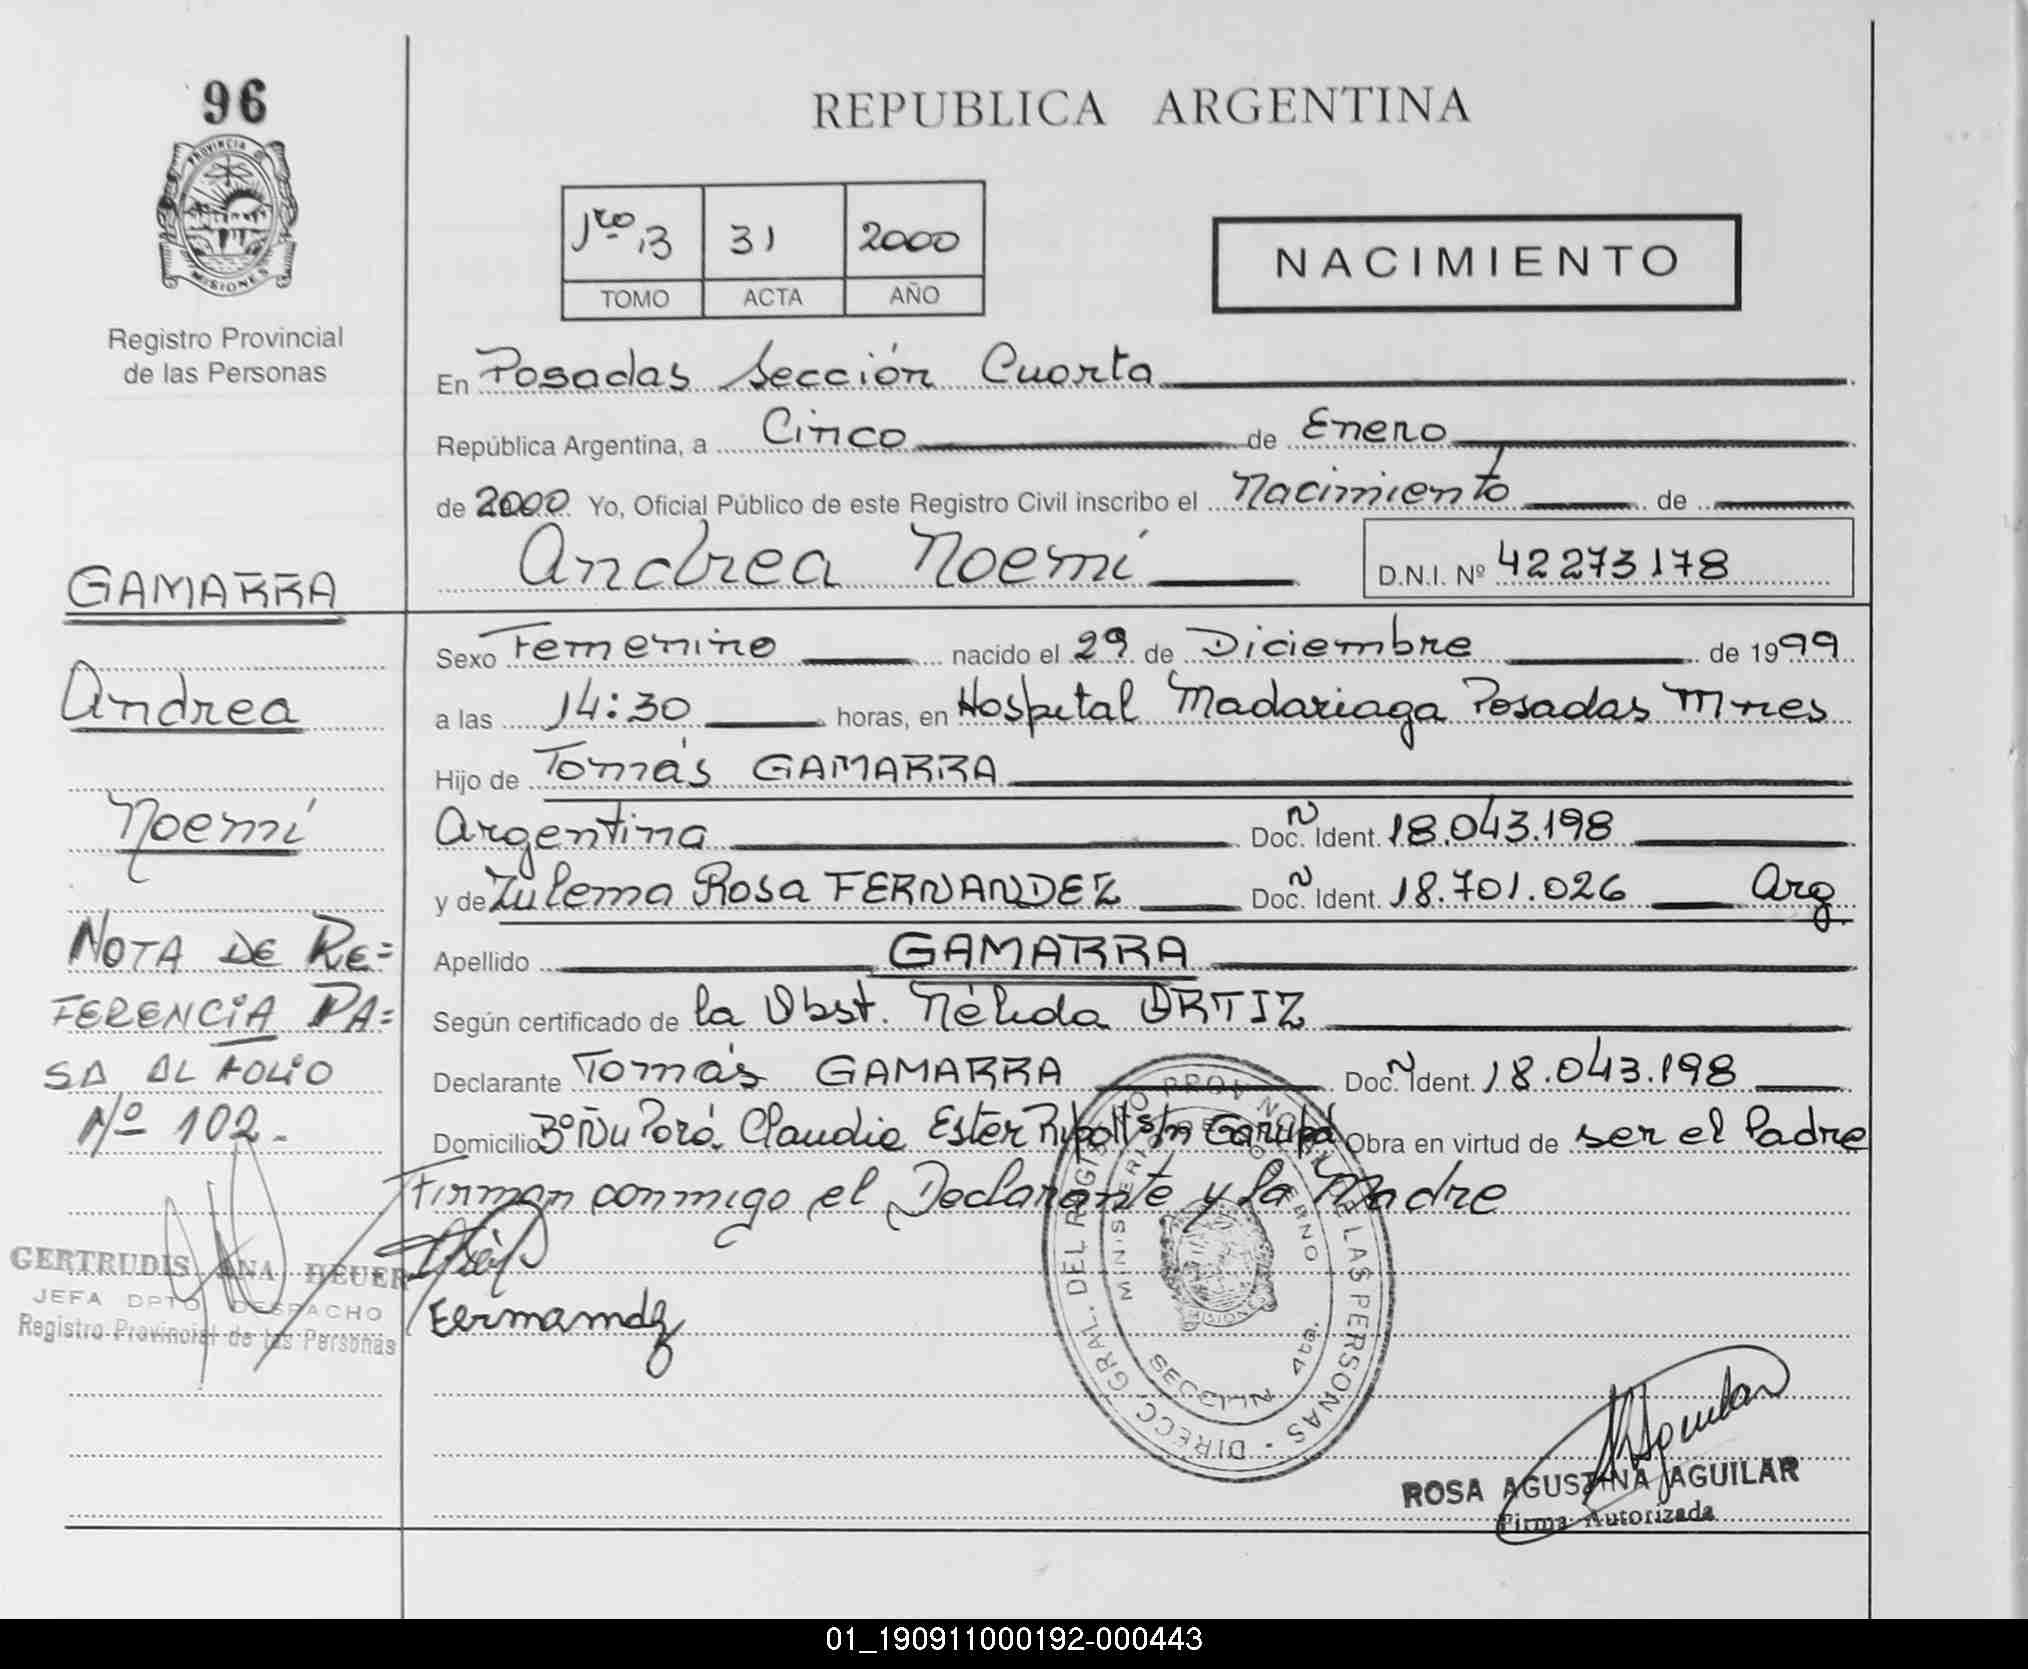 96
PROVINCIA DE
MISIONES
Registro Provincial
de las Personas
REPUBLICA ARGENTINA
1ro 13 31 2000
TOMO ACTA AÑO
NACIMIENTO
En Posadas Sección Cuarta
República Argentina, a Cinco de Enero
de 2000 Yo, Oficial Público de este Registro Civil inscribo el Nacimiento de
Andrea Noemí D.N.I. Nº 42273178
GAMARRA
Andrea
Noemí
Sexo Femenino nacido el 29 de Diciembre de 1999
a las 14:30 horas, en Hospital Madariaga Posadas Mnes
Hijo de Tomás GAMARRA
Argentina Doc. Ident. 18.043.198
y de Zulema Rosa FERNANDEZ Doc. Ident. 18.701.026 Arg.
Apellido GAMARRA
Según certificado de la Obst. Nélida ORTIZ
Declarante Tomás GAMARRA Doc. Ident. 18.043.198
Domicilio Bº Ñu Porá. Claudia Ester s/n Garupá Obra en virtud de ser el Padre
Firman conmigo el Declarante y la Madre
NOTA DE RE=
FERENCIA PA=
SA AL FOLIO
Nº 102.
GERTRUDIS ANA HEUER
JEFA DPTO DESPACHO
Registro Provincial de las Personas
Fernandz
DIRECC. GRAL. DEL REGISTRO PROVINCIAL DE LAS PERSONAS
MINISTERIO DE GOBIERNO
SECCION 4ta.
ROSA AGUSTINA AGUILAR
Firma Autorizada
01_190911000192-000443